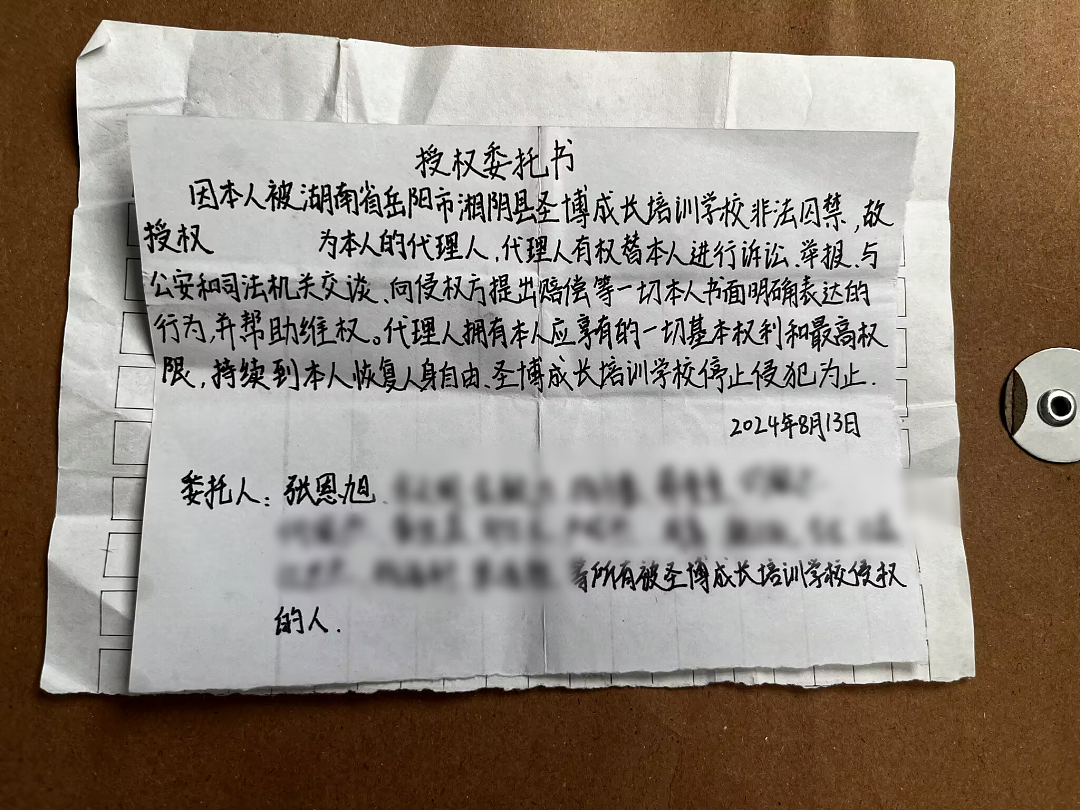 授权委托书
因本人被湖南省岳阳市湘阴县圣博成长培训学校非法囚禁,故
授权 为本人的代理人,代理人有权替本人进行诉讼、举报、与
公安和司法机关交谈、向侵权方提出赔偿等一切本人书面明确表达的
行为,并帮助维权。代理人拥有本人应享有的一切基本权利和最高权
限,持续到本人恢复人身自由、圣博成长培训学校停止侵犯为止.
2024年8月13日
委托人:张恩旭、
等所有被圣博成长培训学校侵权
的人.